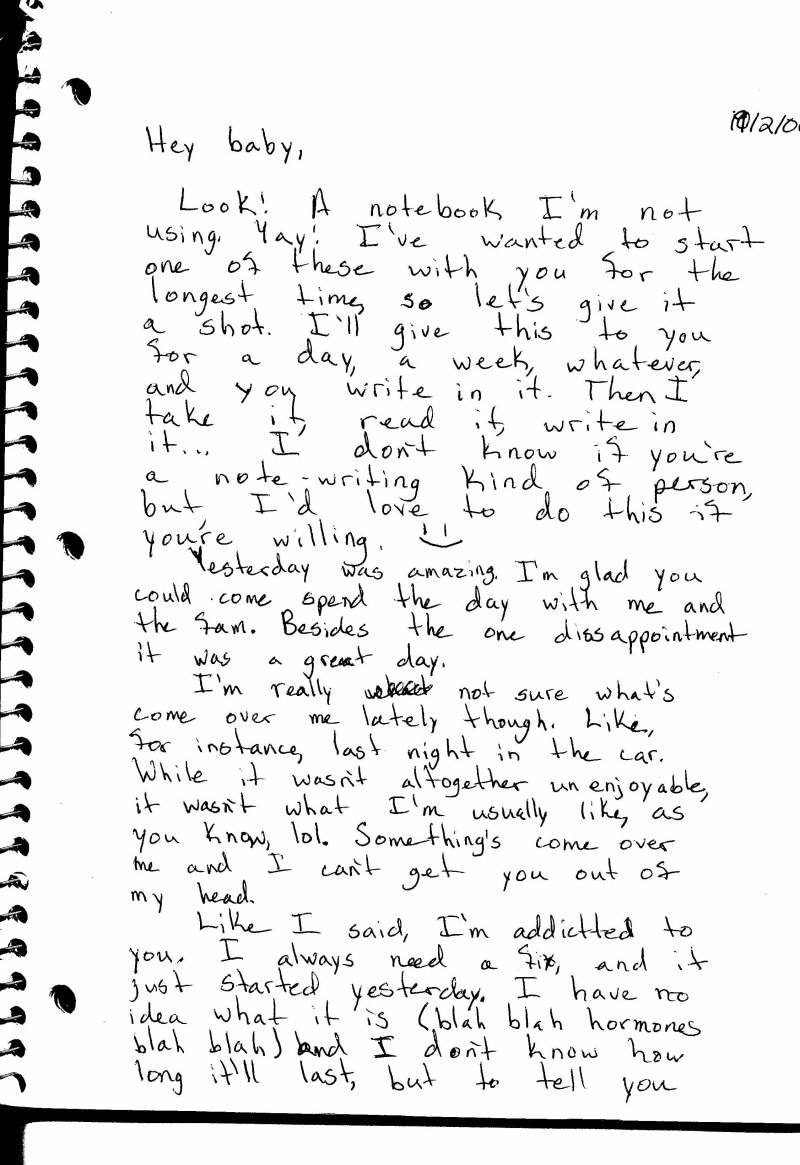 Hey baby,
Look! A notebook I'm not
using. Yay! I've wanted to start
one of these with you for the
longest time, so let's give it
a shot. I'll give this to you
for a day, a week, whatever,
and you write in it. Then I
take it, read it, write in
it... I don't know if you're
a note-writing kind of person,
but, I'd love to do this if
you're willing.
Yesterday was amazing. I'm glad you
could come spend the day with me and
the fam. Besides the one dissappointment
it was a great day.
I'm really not sure what's
come over me lately though. Like,
for instance, last night in the car.
While it wasn't altogether unenjoyable,
it wasn't what I'm usually like, as
you know, lol. Something's come over
me and I can't get you out of
my head.
Like I said, I'm addictted to
you. I always need a fix, and it
just started yesterday. I have no
idea what it is (blah blah hormones
blah blah) and I don't know how
long it'll last, but to tell you